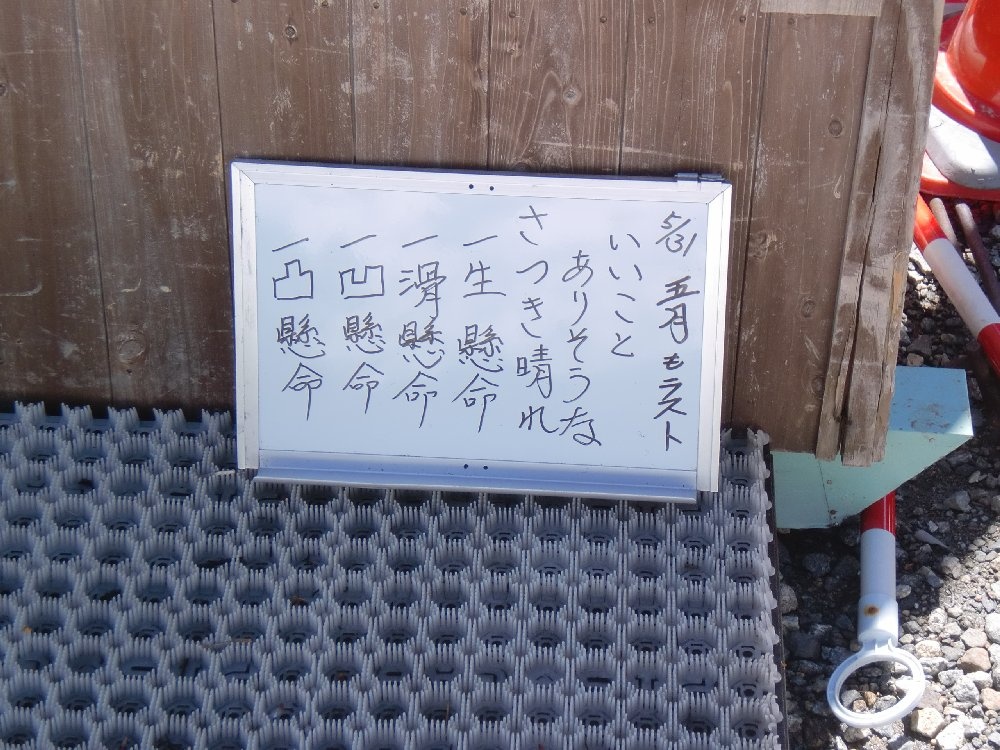 5/31 五月もラスト
いいこと
ありそうな
さつき晴れ
一生懸命
一滑懸命
一凹懸命
一凸懸命